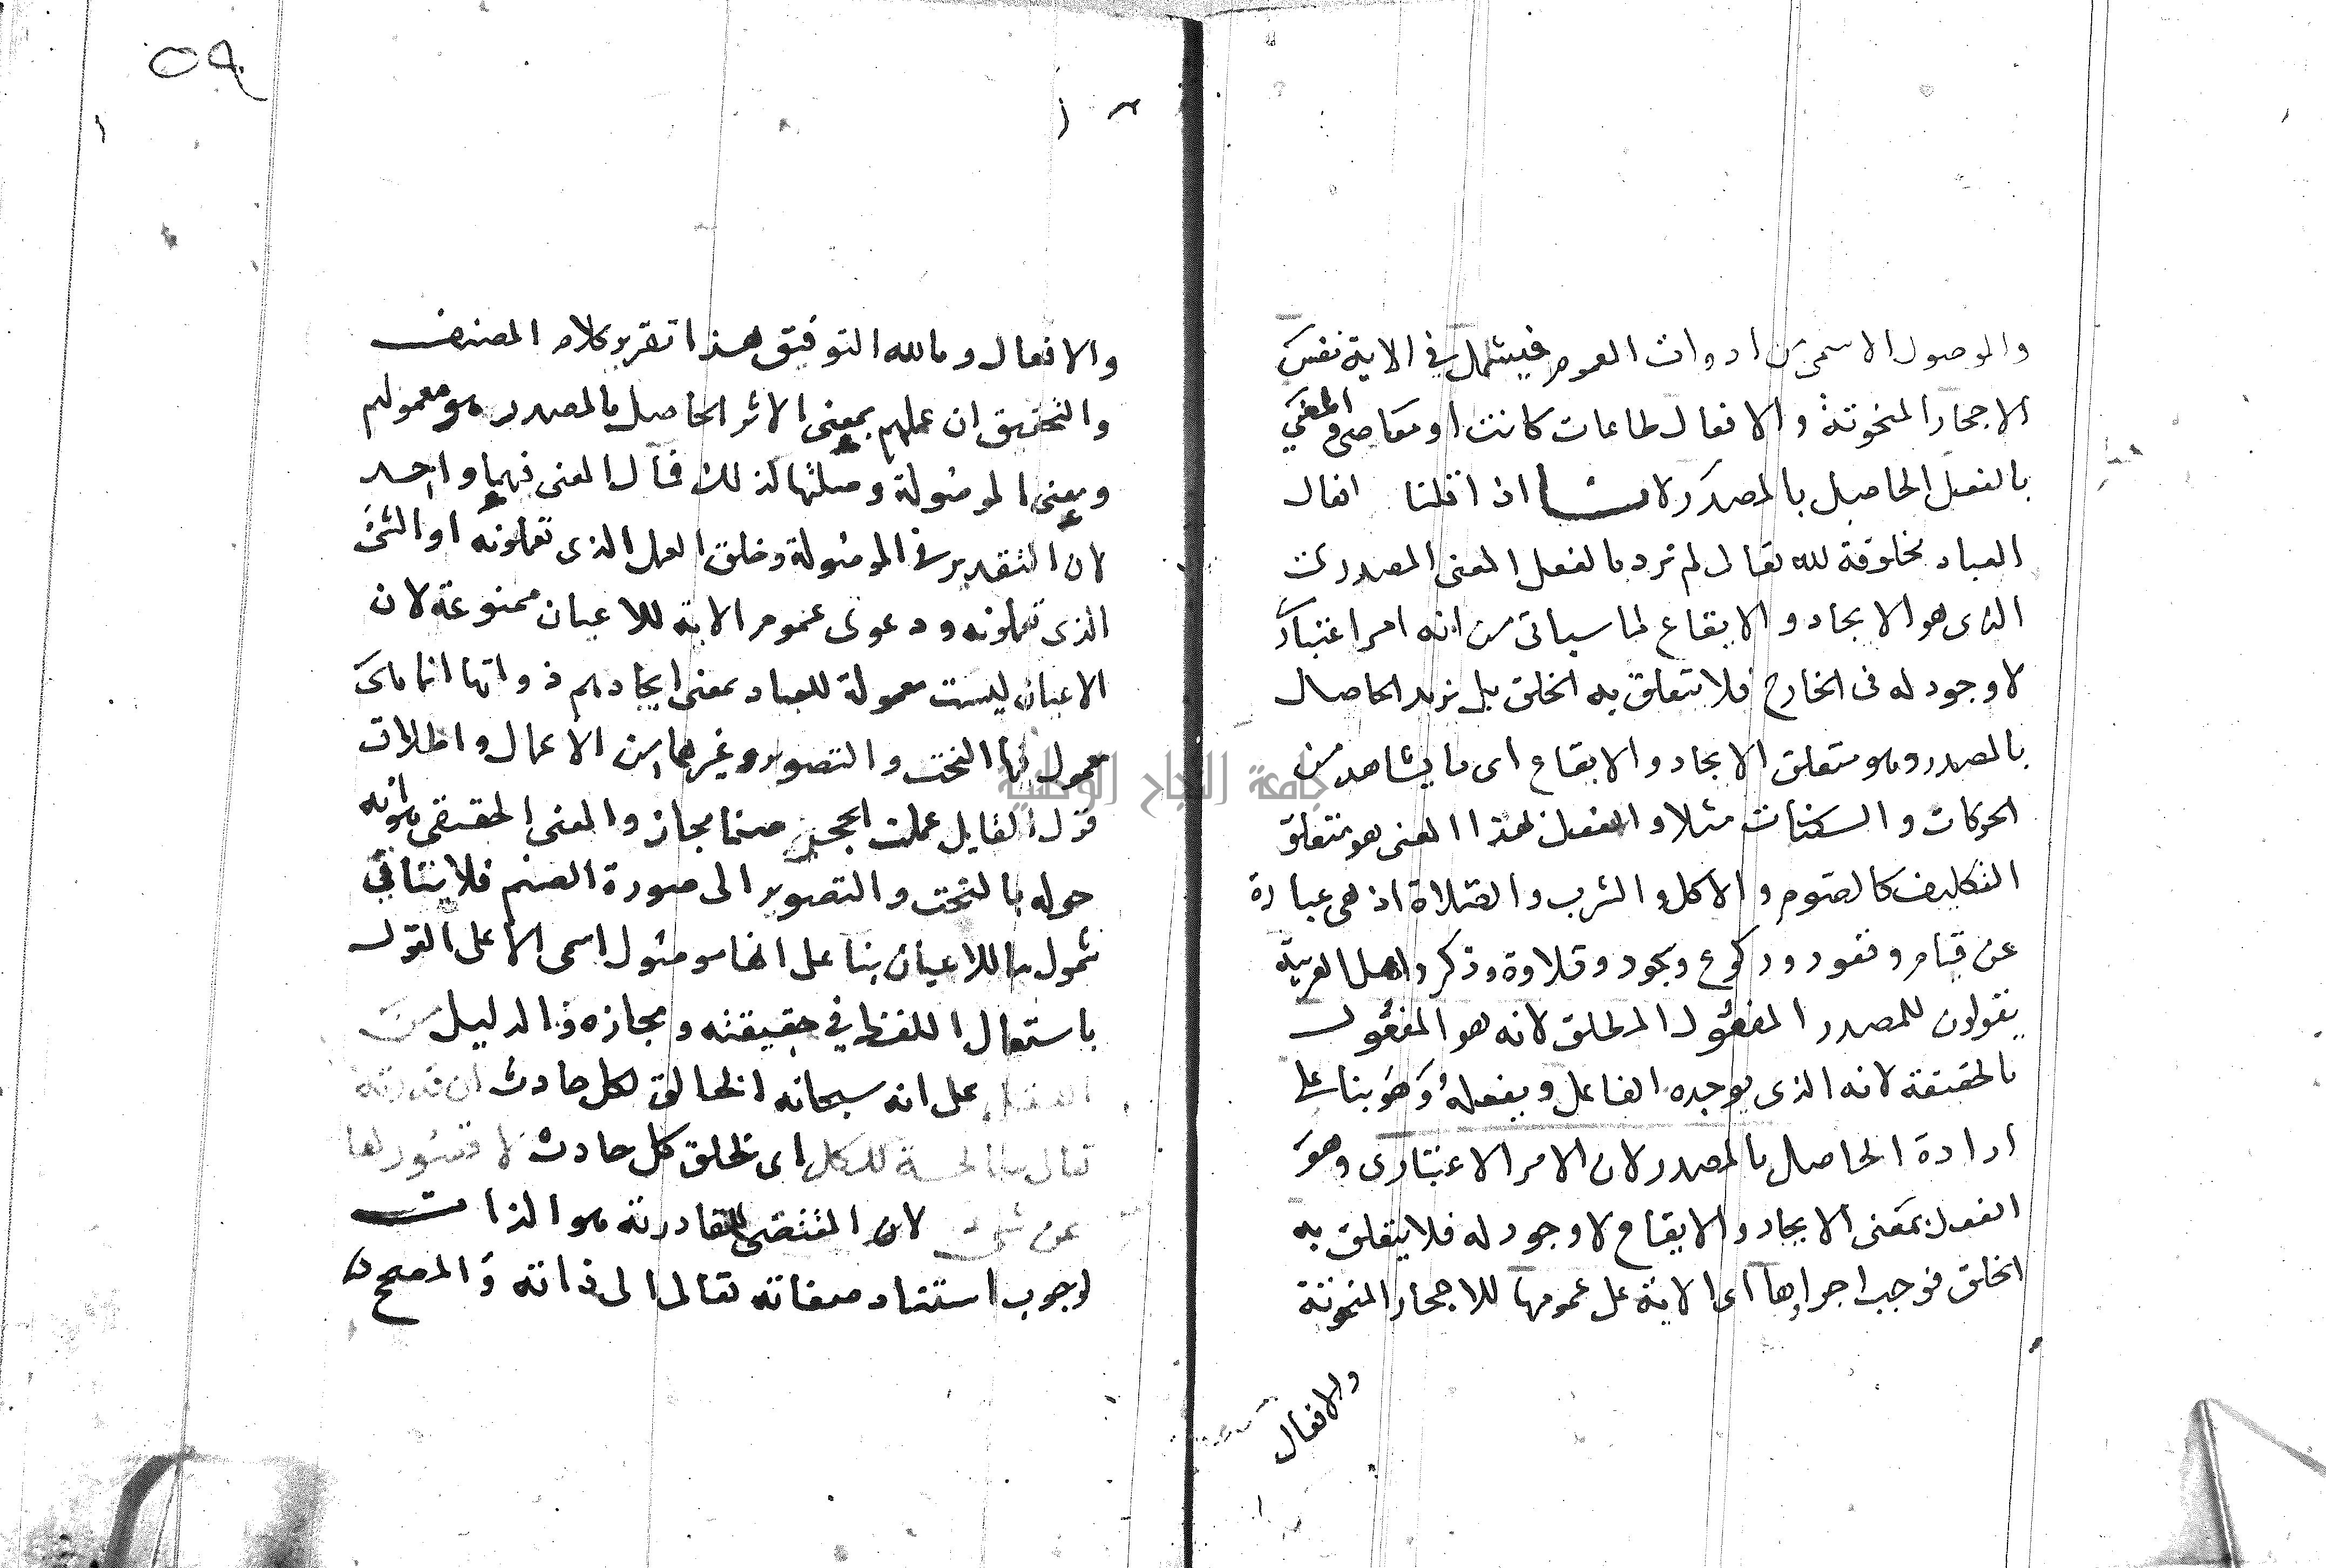 والموصول الاسمى من ادوات العموم فيشمل في الاية نفس
الاحجار المنحوتة والافعال طاعات كانت او معاصى والمعنى
بالفعل الحاصل بالمصدر لانا اذا قلنا افعال
العباد مخلوقة لله تعالى لم نرد بالفعل المعنى المصدرى
الذى هو الايجاد والايقاع لما سياتى من انه امر اعتبارى
لا وجود له فى الخارج فلا يتعلق به الخلق بل نريد الحاصل
بالمصدر وهو متعلق الايجاد والايقاع اى ما يشاهد من
الحركات والسكنات مثلا والفعل بهذا المعنى هو متعلق
التكليف كالصوم والاكل والشرب والصلاة اذ هى عبارة
عن قيام وقعود وركوع وسجود وتلاوة وذكر واهل العربية
يقولون للمصدر المفعول المطلق لانه هو المفعول
بالحقيقة لانه الذى يوجده الفاعل ويفعله وهو بنا على
ارادة الحاصل بالمصدر لان الامر الاعتبارى وهو
الفعل بمعنى الايجاد والايقاع لا وجود له فلا يتعلق به
الخلق فوجب اجراها اى الاية على عمومها للاحجار المنحوتة
والافعال
٥٩
والافعال وبالله التوفيق هذا تقرير كلام المصنف
والتحقيق ان عملهم بمعنى الاثر الحاصل بالمصدر هو معمولهم
ومعنى الموصولة وصلتها كذلك فمآل المعنى فيهما واحد
لان التقدير فى الموصولة وخلق العمل الذى تعملونه او الشئ
الذى تعملونه ودعوى عموم الاية للاعيان ممنوعة لان
الاعيان ليست معمولة للعباد بمعنى ايجادهم ذواتها انما هى
معمول فيها النحت والتصوير وغيرهما من الاعمال واطلاق
قول القايل عملت الحجر صنما مجاز والمعنى الحقيقى هو انه
حوله بالنحت والتصوير الى صورة الصنم فلا ينافي
شمول ما للاعيان بنا على انها موصول اسمى الا على القول
باستعمال اللفظ في حقيقته ومجازه والدليل من
العقل على انه سبحانه الخالق لكل حادث ان قدرته
تعالى صالحة للكل اى لخلق كل حادث لا قصور لها
عن شئ لان المقتضى للقادرية هو الذات
لوجوب استناد صفاته تعالى الى ذاته والمصحح
جامعة النجاح الوطنية